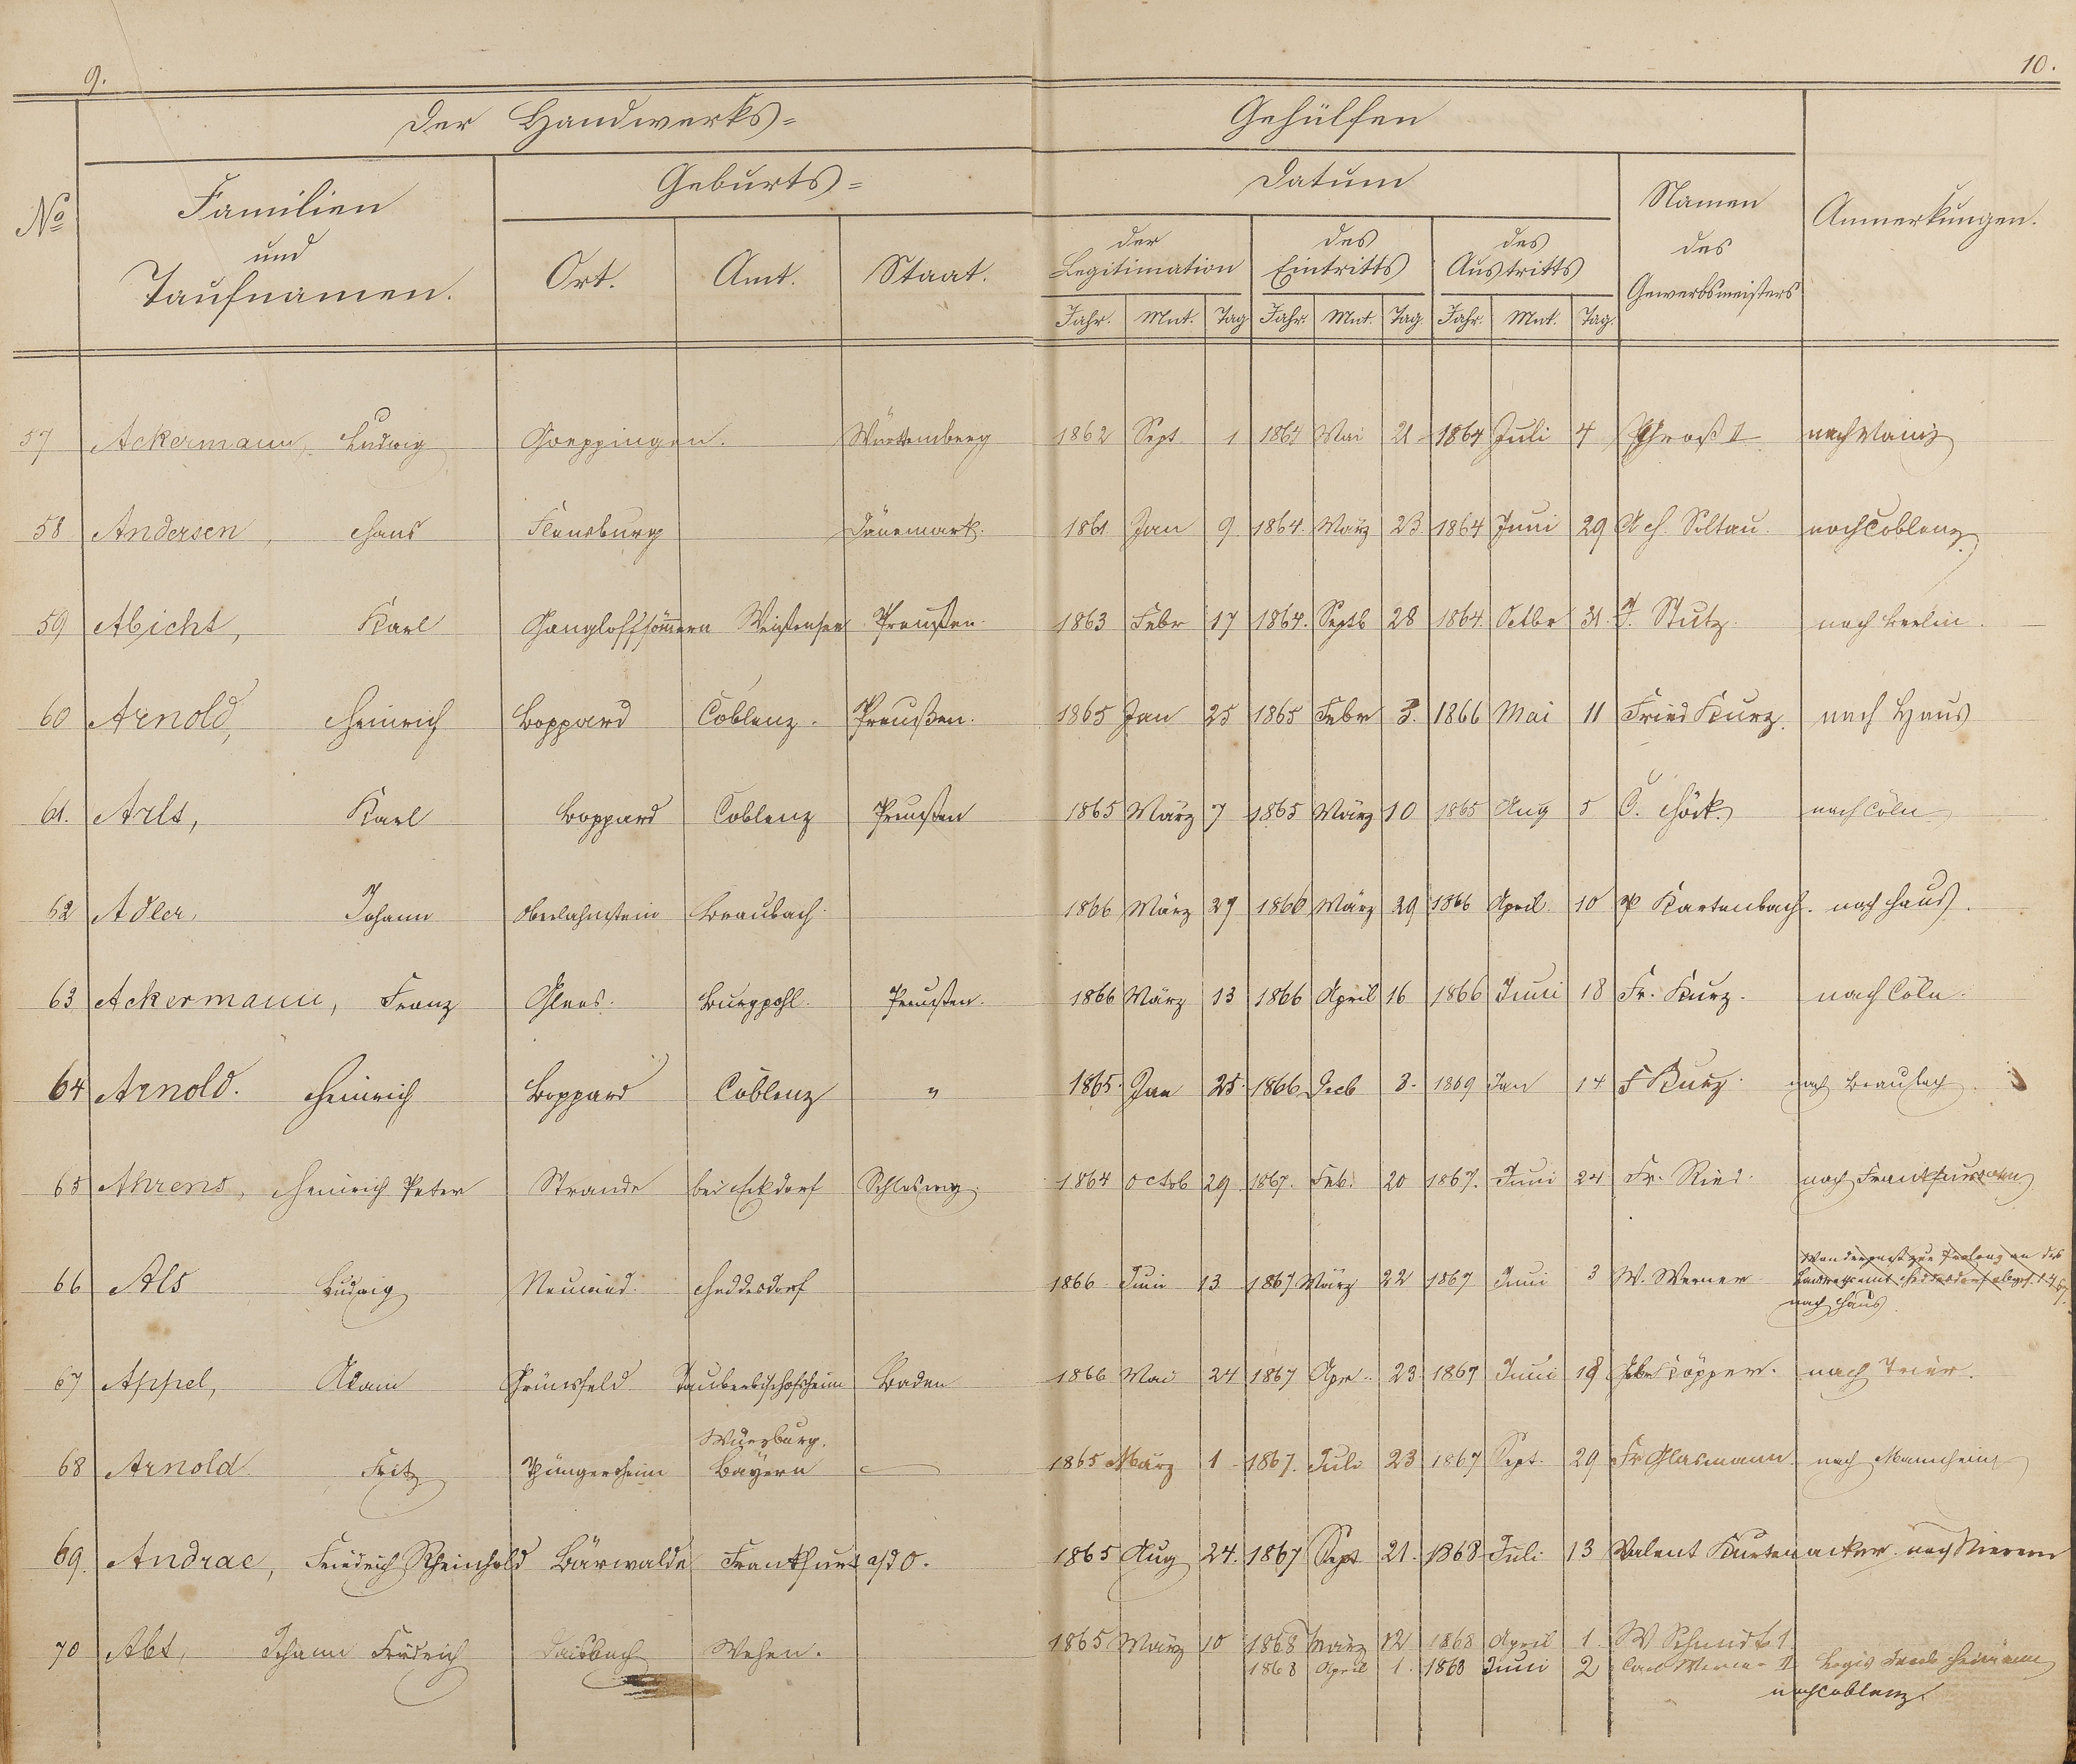 9.
10.
Der Handwerks= Gehülfen
No
Familien und Taufnamen.
Geburts=
Ort. Amt. Staat.
Datum
der Legitimation
des Eintritts
des Austritts
Jahr. Mnt. Tag Jahr Mnt. Tag. Jahr. Mnt. Tag.
Namen des Gewerbsmeisters
Anmerkungen.
57 Ackermann, Ludwig Goeppingen. Württemberg 1862 Sept 1 1864 Mai 21 1864 Juli 4 II nach Mainz
58 Andersen, Hans Flensburg Dänemark. 1861 Jan 9 1864. März 23 1864 Juni 29 Soltau. nach Coblenz
59 Abicht, Karl Gangloffsömern Weißensee Preußen. 1863 Febr 17 1864. Septb 28 1864. Octbr 31. J. Stutz. nach Berlin.
60 Arnold, Heinrich Boppard Coblenz. Preußen. 1865 Jan 25 1865 Febr 3. 1866 Mai 11 Fried Kurz. nach Haus
61. Arlt, Karl Boppard Coblenz Preußen 1865 März 7 1865 März 10 1865 Aug 5 nach Cöln
62 Adler, Johann Oberlahnstein Braubach. 1866 März 27 1866 März 29 1866 April 10 P Kartenbach. nach Haus.
63 Ackermann, Franz Glees. Burgpohl. Preußen. 1866 März 13 1866 April 16 1866 Juni 18 Fr. Kurz. nach Cöln.
64 Arnold. Heinrich Boppard Coblenz " 1865. Jan 25. 1866 Decb 3. 1869 Jan 14 F Kurz. nach Braubach.
65 Ahrens, Heinrich Peter Strande bei Eckdorf Schleswig. 1864 Octob 29 1867. Feb. 20 1867. Juni 24 Fr. Ried. nach Frankfurt
66 Als Ludwig Neuwied. Heddesdorf 1866 Juni 13 1867 März 22 1867 Juni 3 W. Werner
nach Haus
67 Appel, Adam Grünsfeld Tauberbischofsheim Baden 1866 Mai 24 1867 Apr.. 23 1867 Juni 18 Küpper. nach Trier.
Würzburg.
68 Arnold Fritz Thüngersheim Bayern — 1865 März 1 1867. Juli 23 1867 Sept. 29 Fr Glasmann nach Mannheim
69. Andrae, Friedrich Rheinhold Bärwalde Frankfurt a/d O. 1865 Aug 24. 1867 Sept 21. 1868 Juli 13 Valent Kurtenacker. nach Nievern
70 Abt, Johann Friedrich Daisbach Wehen. 1865 März 10 1868 März 12 1868 April 1. W Schmidt 1.
1868 April 1. 1868 Juni 2 Carl Werner II
nach Coblenz.